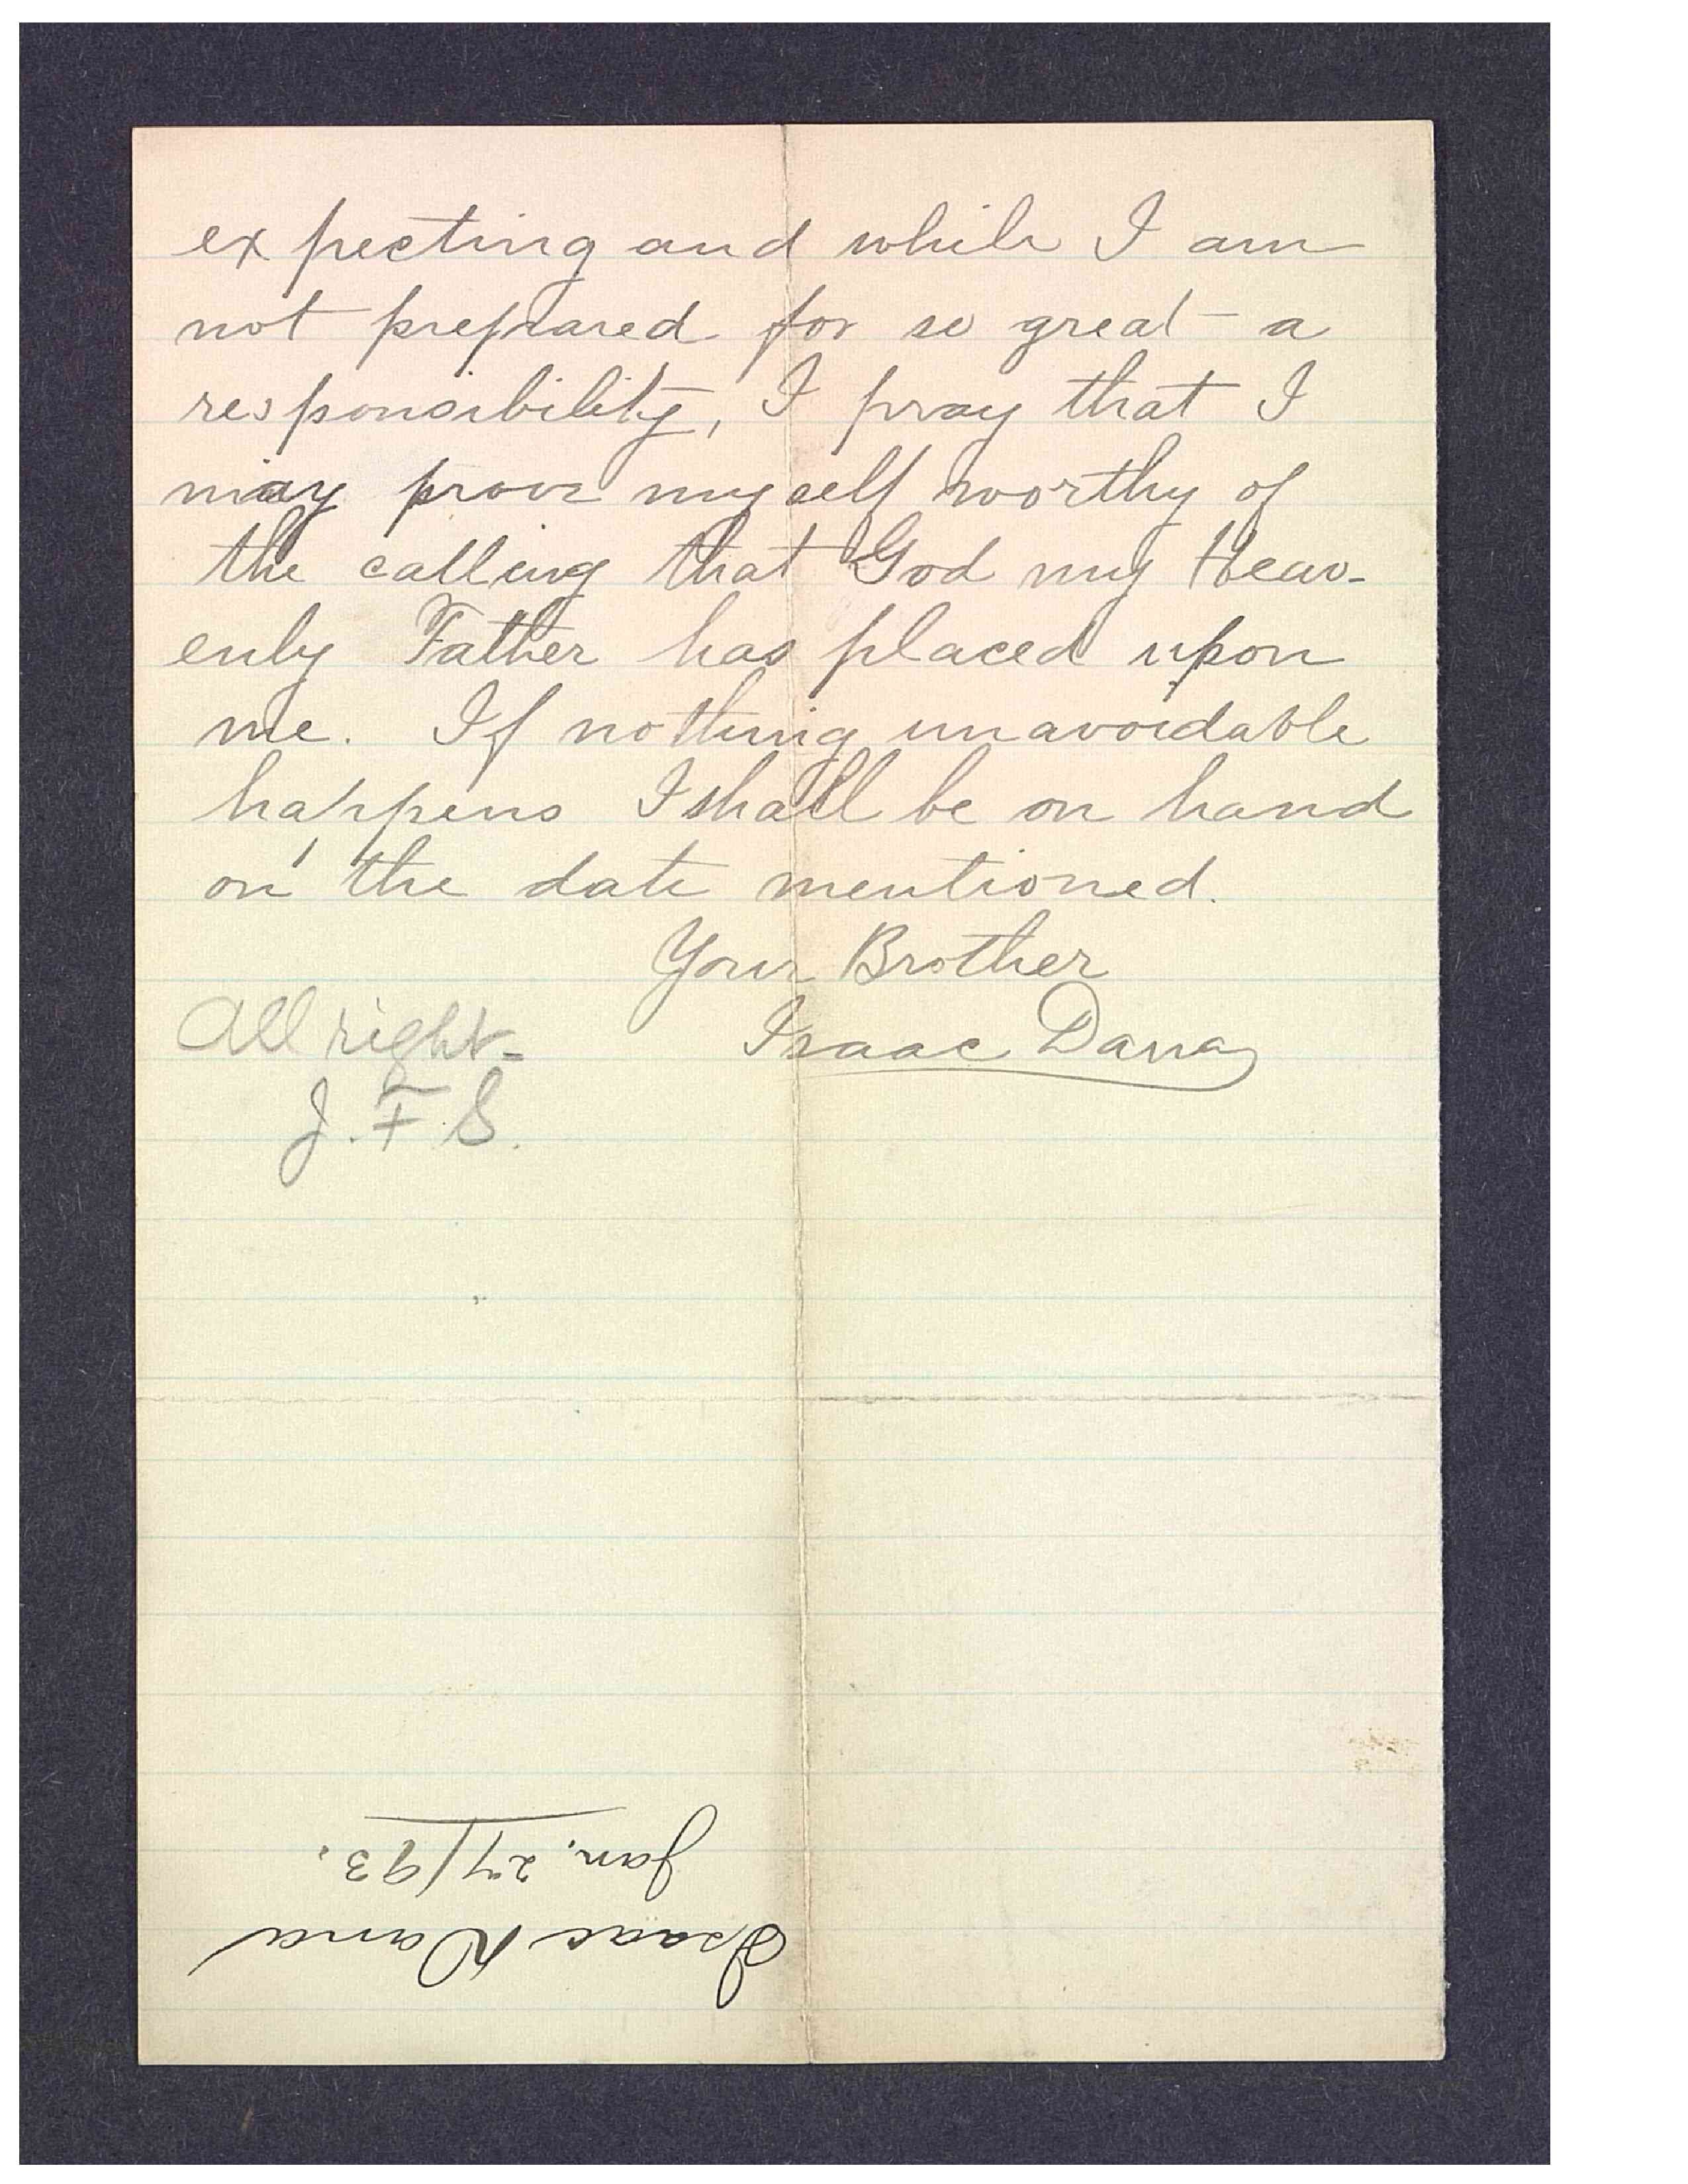 expecting and while I am
not prepared for so great a
responsibility, I pray that I
may prove myself worthy of
the calling that God my Heav-
enly Father has placed upon
me. If nothing unavoidable
happens I shall be on hand
on the date mentioned.
Your Brother
Isaac Dana
All right-
J. F. S.
Isaac Dana
Jan. 27/93.